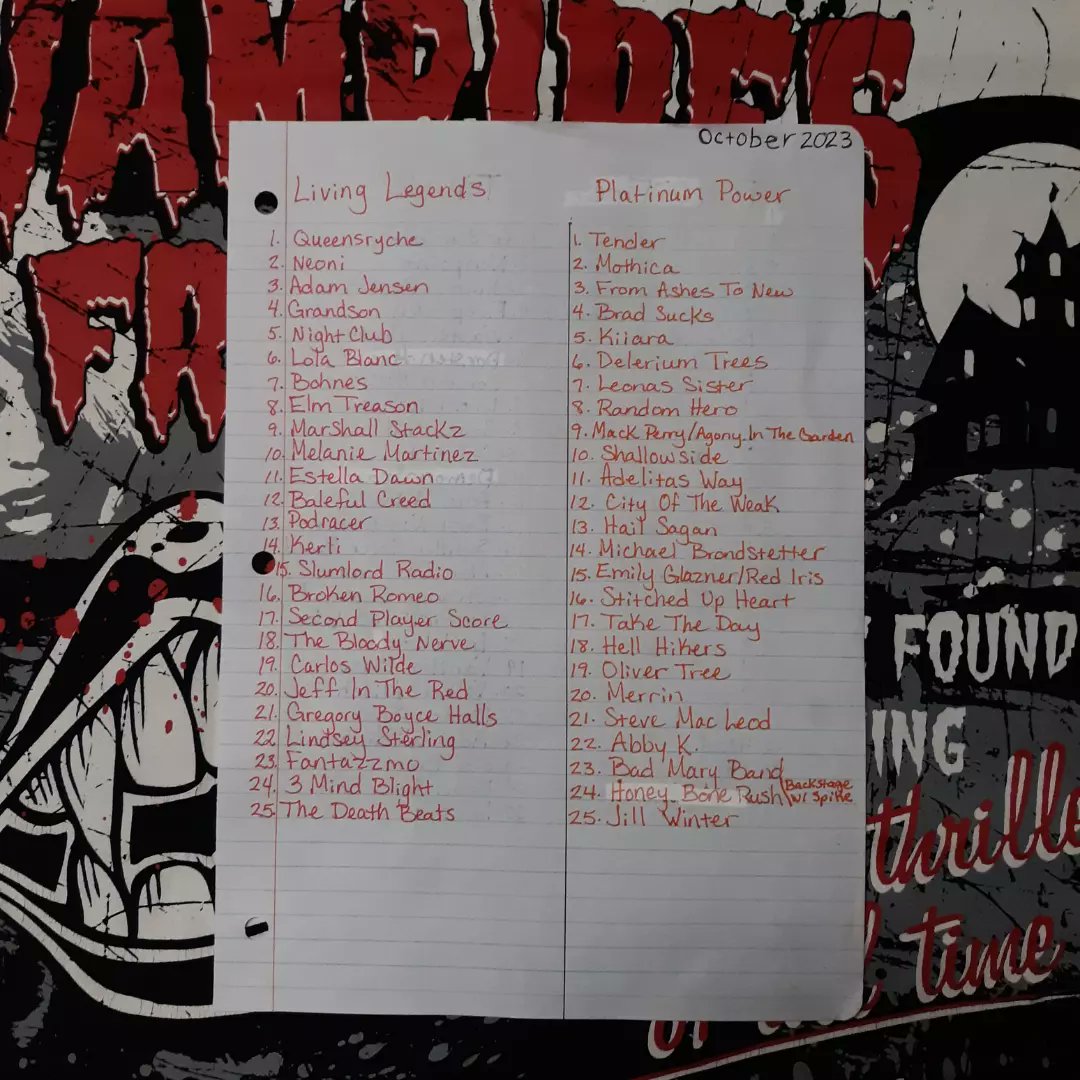 VAMPIRES
FR
October 2023
Living Legends
1. Queensryche
2. Neoni
3. Adam Jensen
4. Grandson
5. Night Club
6. Lola Blanc
7. Bohnes
8. Elm Treason
9. Marshall Stackz
10. Melanie Martinez
11. Estella Dawn
12. Baleful Creed
13. Podracer
14. Kerli
15. Slumlord Radio
16. Broken Romeo
17. Second Player Score
18. The Bloody Nerve
19. Carlos Wilde
20. Jeff In The Red
21. Gregory Boyce Halls
22. Lindsey Sterling
23. Fantazzmo
24. 3 Mind Blight
25. The Death Beats
Platinum Power
1. Tender
2. Mothica
3. From Ashes To New
4. Brad Sucks
5. Kiiara
6. Delerium Trees
7. Leonas Sister
8. Random Hero
9. Mack Perry/Agony In The Garden
10. Shallowside
11. Adelitas Way
12. City Of The Weak
13. Hail Sagan
14. Michael Brandstetter
15. Emily Glazner/Red Iris
16. Stitched Up Heart
17. Take The Day
18. Hell Hikers
19. Oliver Tree
20. Merrin
21. Steve Mac Leod
22. Abby K.
23. Bad Mary Band
24. Honey Bone Rush/Backstage w/ Spike
25. Jill Winter
FOUND
ING
thrille
of all time